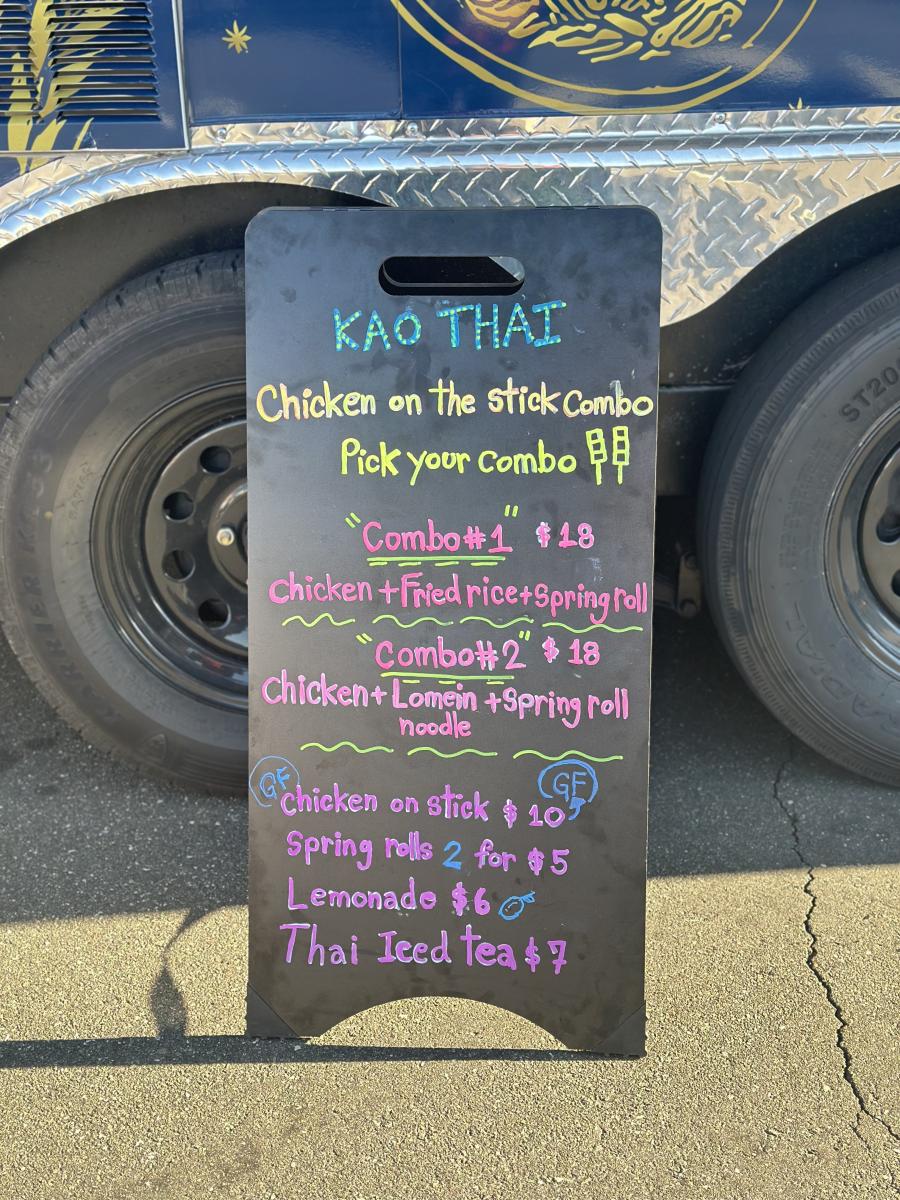 KAO THAI
Chicken on the stick Combo
Pick your combo
"Combo#1" $18
Chicken + Fried rice + Spring roll
"Combo#2" $18
Chicken + Lomein + Spring roll
noodle
GF GF
Chicken on stick $10
Spring rolls 2 for $5
Lemonade $6
Thai Iced tea $7
ST20